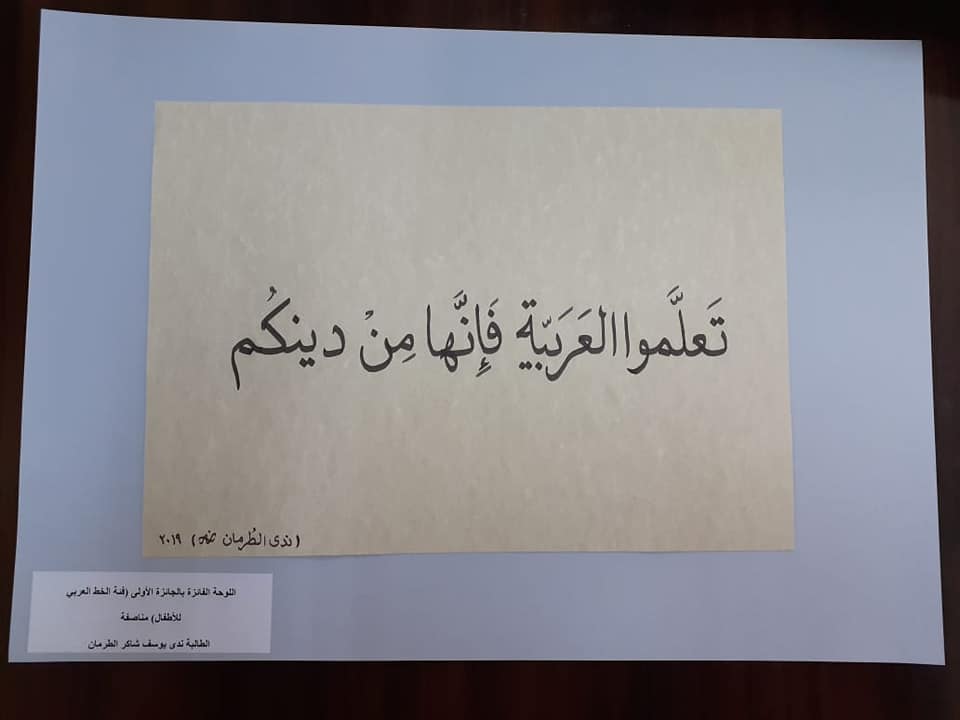 تَعَلَّموا العَرَبيّة فَإِنَّها مِنْ دينكُم
(ندى الطُرمان) ٢٠١٩
اللوحة الفائزة بالجائزة الأولى (فئة الخط العربي
للأطفال) مناصفة
الطالبة ندى يوسف شاكر الطرمان